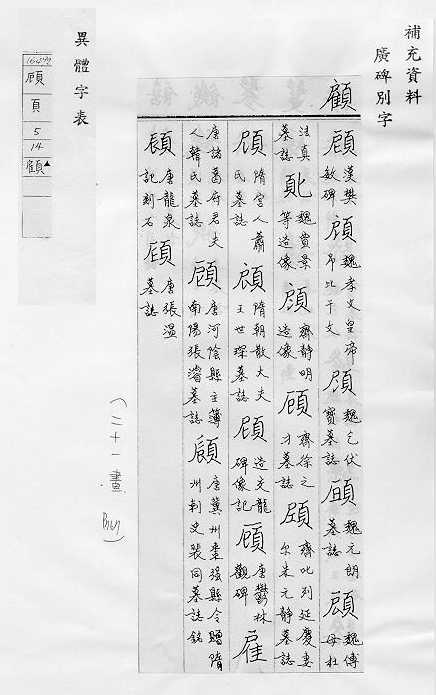 補充資料
廣碑別字
顧
漢樊敏碑
魏孝文皇帝吊比干文
魏乞伏寶墓誌
魏元朗墓誌
魏傅母杜
法真墓誌
魏賈景等造像
齊靜明造像
齊徐之才墓誌
齊比列延慶妻尔朱元靜墓誌
隋宮人蕭氏墓誌
隋朝散大夫王世琛墓誌
造交龍碑像記
唐鬱林觀碑
唐諸葛府君夫人韓氏墓誌
唐河陰縣主簿南陽張濬墓誌
唐冀州棗强縣令贈隋州刺史裴同墓誌銘
唐龍泉記刻石
唐張溫墓誌
(二十一畫
異體字表
16477
顧
頁
5
14